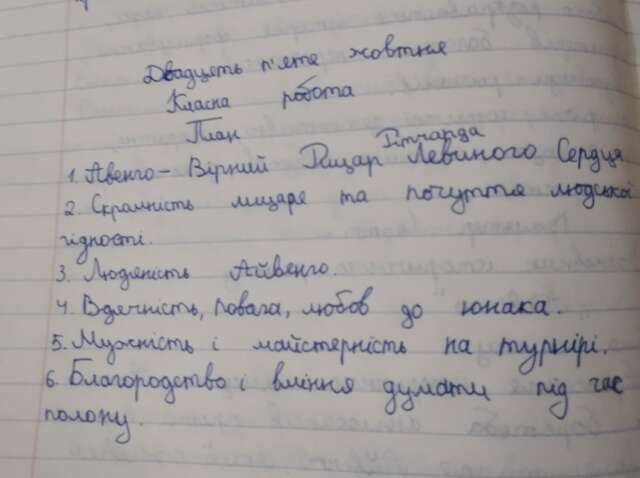 Двадцять п'яте жовтня
Класна робота
План
Річарда
1. Авенго – Вірний Рицар Левиного Серця
2. Скромність лицаря та почуття людської
гідності.
3. Людяність Айвенго.
4. Вдячність, повага, любов до юнака.
5. Мужність і майстерність на турнірі.
6. Благородство і вміння думати під час
полону.